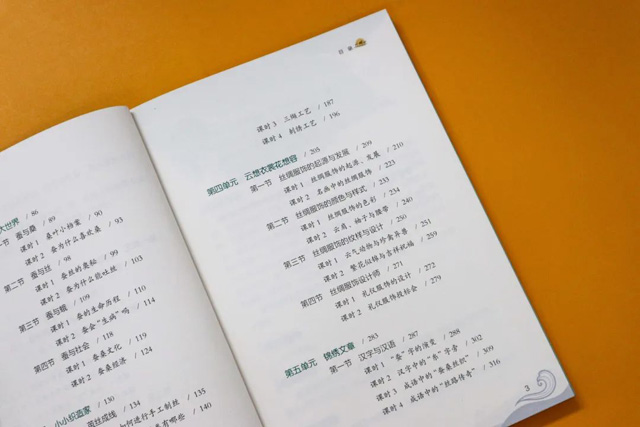 大世界 / 86
节 蚕与桑 / 89
课时 1 桑叶小档案 / 90
课时 2 蚕为什么喜欢桑 / 93
第二节 蚕与丝 / 98
课时 1 蚕丝的奥秘 / 99
课时 2 蚕为什么能吐丝 / 103
第三节 蚕与蛾 / 109
课时 1 蚕的生命历程 / 110
课时 2 蚕会“生病”吗 / 114
第四节 蚕与社会 / 118
课时 1 蚕桑文化 / 119
课时 2 蚕桑经济 / 124
小小织造家 / 130
茧丝成线 /
如何进行手工制丝 / 135
有哪些 / 140
目 录
课时 3 三缬工艺 / 187
课时 4 刺绣工艺 / 196
第四单元 云想衣裳花想容 / 205
第一节 丝绸服饰的起源与发展 / 209
课时 1 丝绸服饰的起源、发展 / 210
课时 2 名画中的丝绸服饰 / 223
第二节 丝绸服饰的颜色与样式 / 233
课时 1 丝绸服饰的色彩 / 234
课时 2 云肩、袖子与腰带 / 240
第三节 丝绸服饰的纹样与设计 / 250
课时 1 云气动物与珍禽异兽 / 251
课时 2 繁花似锦与吉祥祝福 / 259
第四节 丝绸服饰设计师 / 271
课时 1 礼仪服饰的设计 / 272
课时 2 礼仪服饰投标会 / 279
第五单元 锦绣文章 / 283
第一节 汉字与汉语 / 287
课时 1 “糸”字的演变 / 288
课时 2 汉字中的“糸”字旁 / 302
课时 3 成语中的“蚕桑丝织” / 309
课时 4 成语中的“丝路传奇” / 316
3